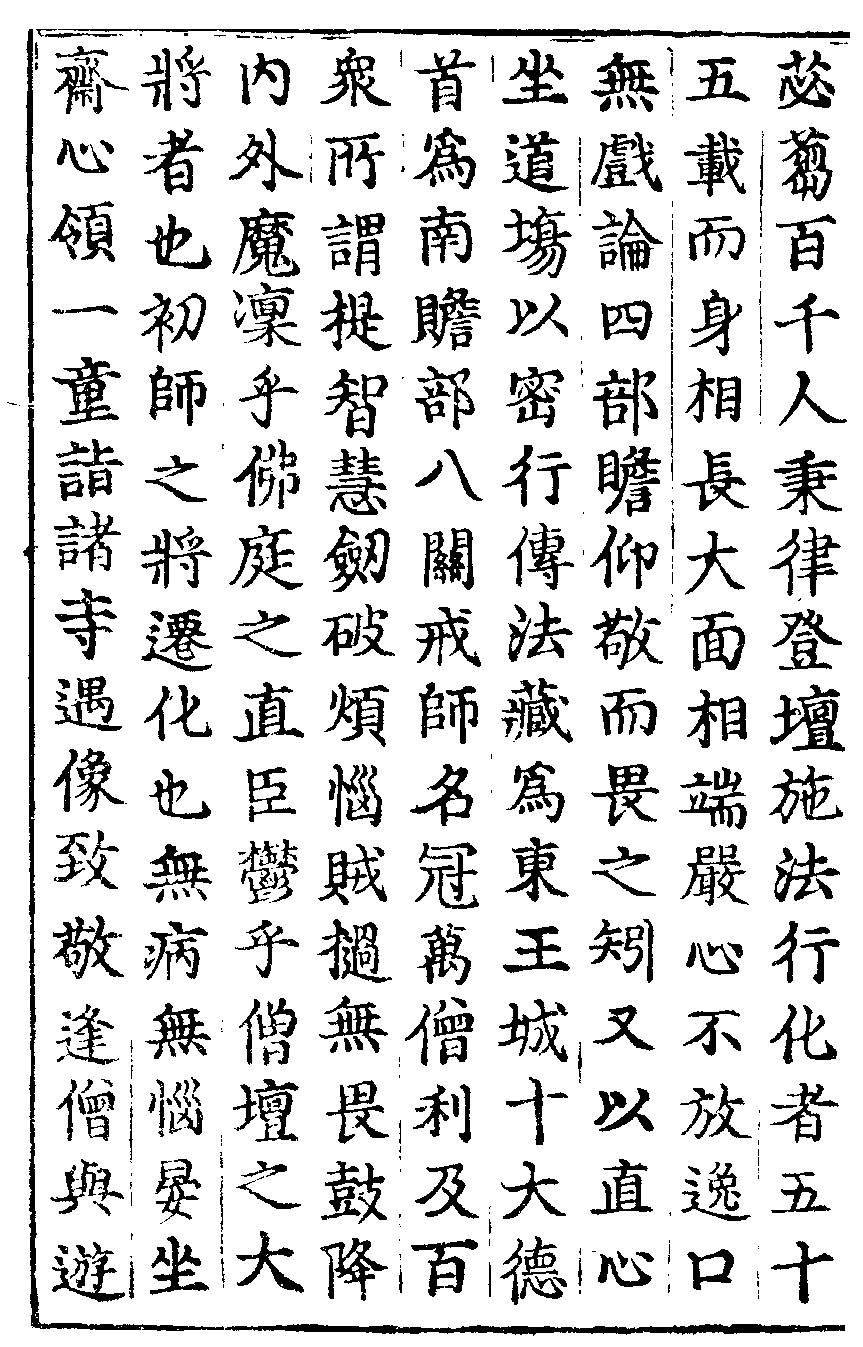 苾蒭百千人秉律登壇施法行化者五十
五載而身相長大面相端嚴心不放逸口
無戲論四部瞻仰敬而畏之矧又以直心
坐道塲以密行傳法藏爲東王城十大德
首爲南贍部八關戒師名冠萬僧利及百
衆所謂提智慧劒破煩惱賊撾無畏鼓降
内外魔凜乎佛庭之直臣鬱乎僧壇之大
將者也初師之將遷化也無病無惱晏坐
齋心領一童詣諸寺遇像致敬逢僧與遊